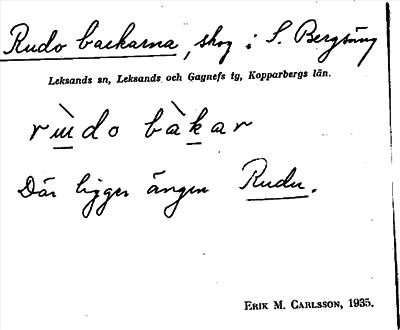 Rudo backarna, skog i S. Bergsäng
Leksands sn, Leksands och Gagnefs tg, Kopparbergs län.
rùdo bàkar
Där ligger ängen Rudu.
ERIK M. CARLSSON, 1935.